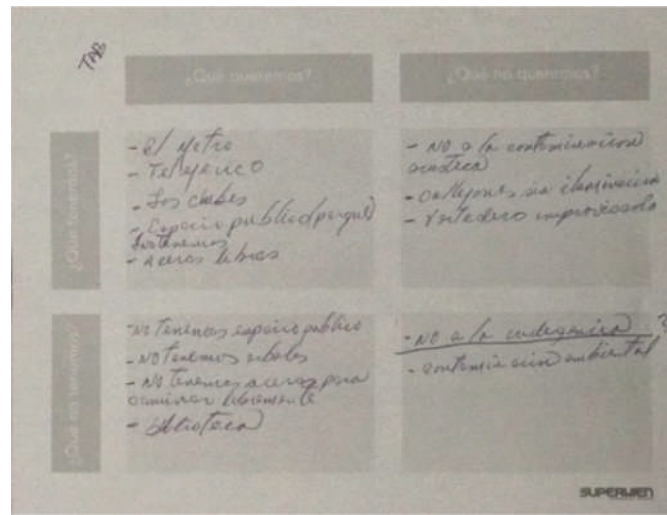 TAB
¿Qué queremos?
¿Qué no queremos?
¿Qué tenemos?
- El Metro
- Teleferico
- Los clubes
- Espacio publico (parque)
los tenemos
- aceras libres
- NO a la contaminacion
acustica
- callejones sin iluminacion
- Vertedero improvisado
¿Qué no tenemos?
- No tenemos espacio publico
- No tenemos arboles
- No tenemos aceras para
caminar libremente
- biblioteca
- NO a la indigencia ?
- contaminacion ambiental
SUPERBIEN